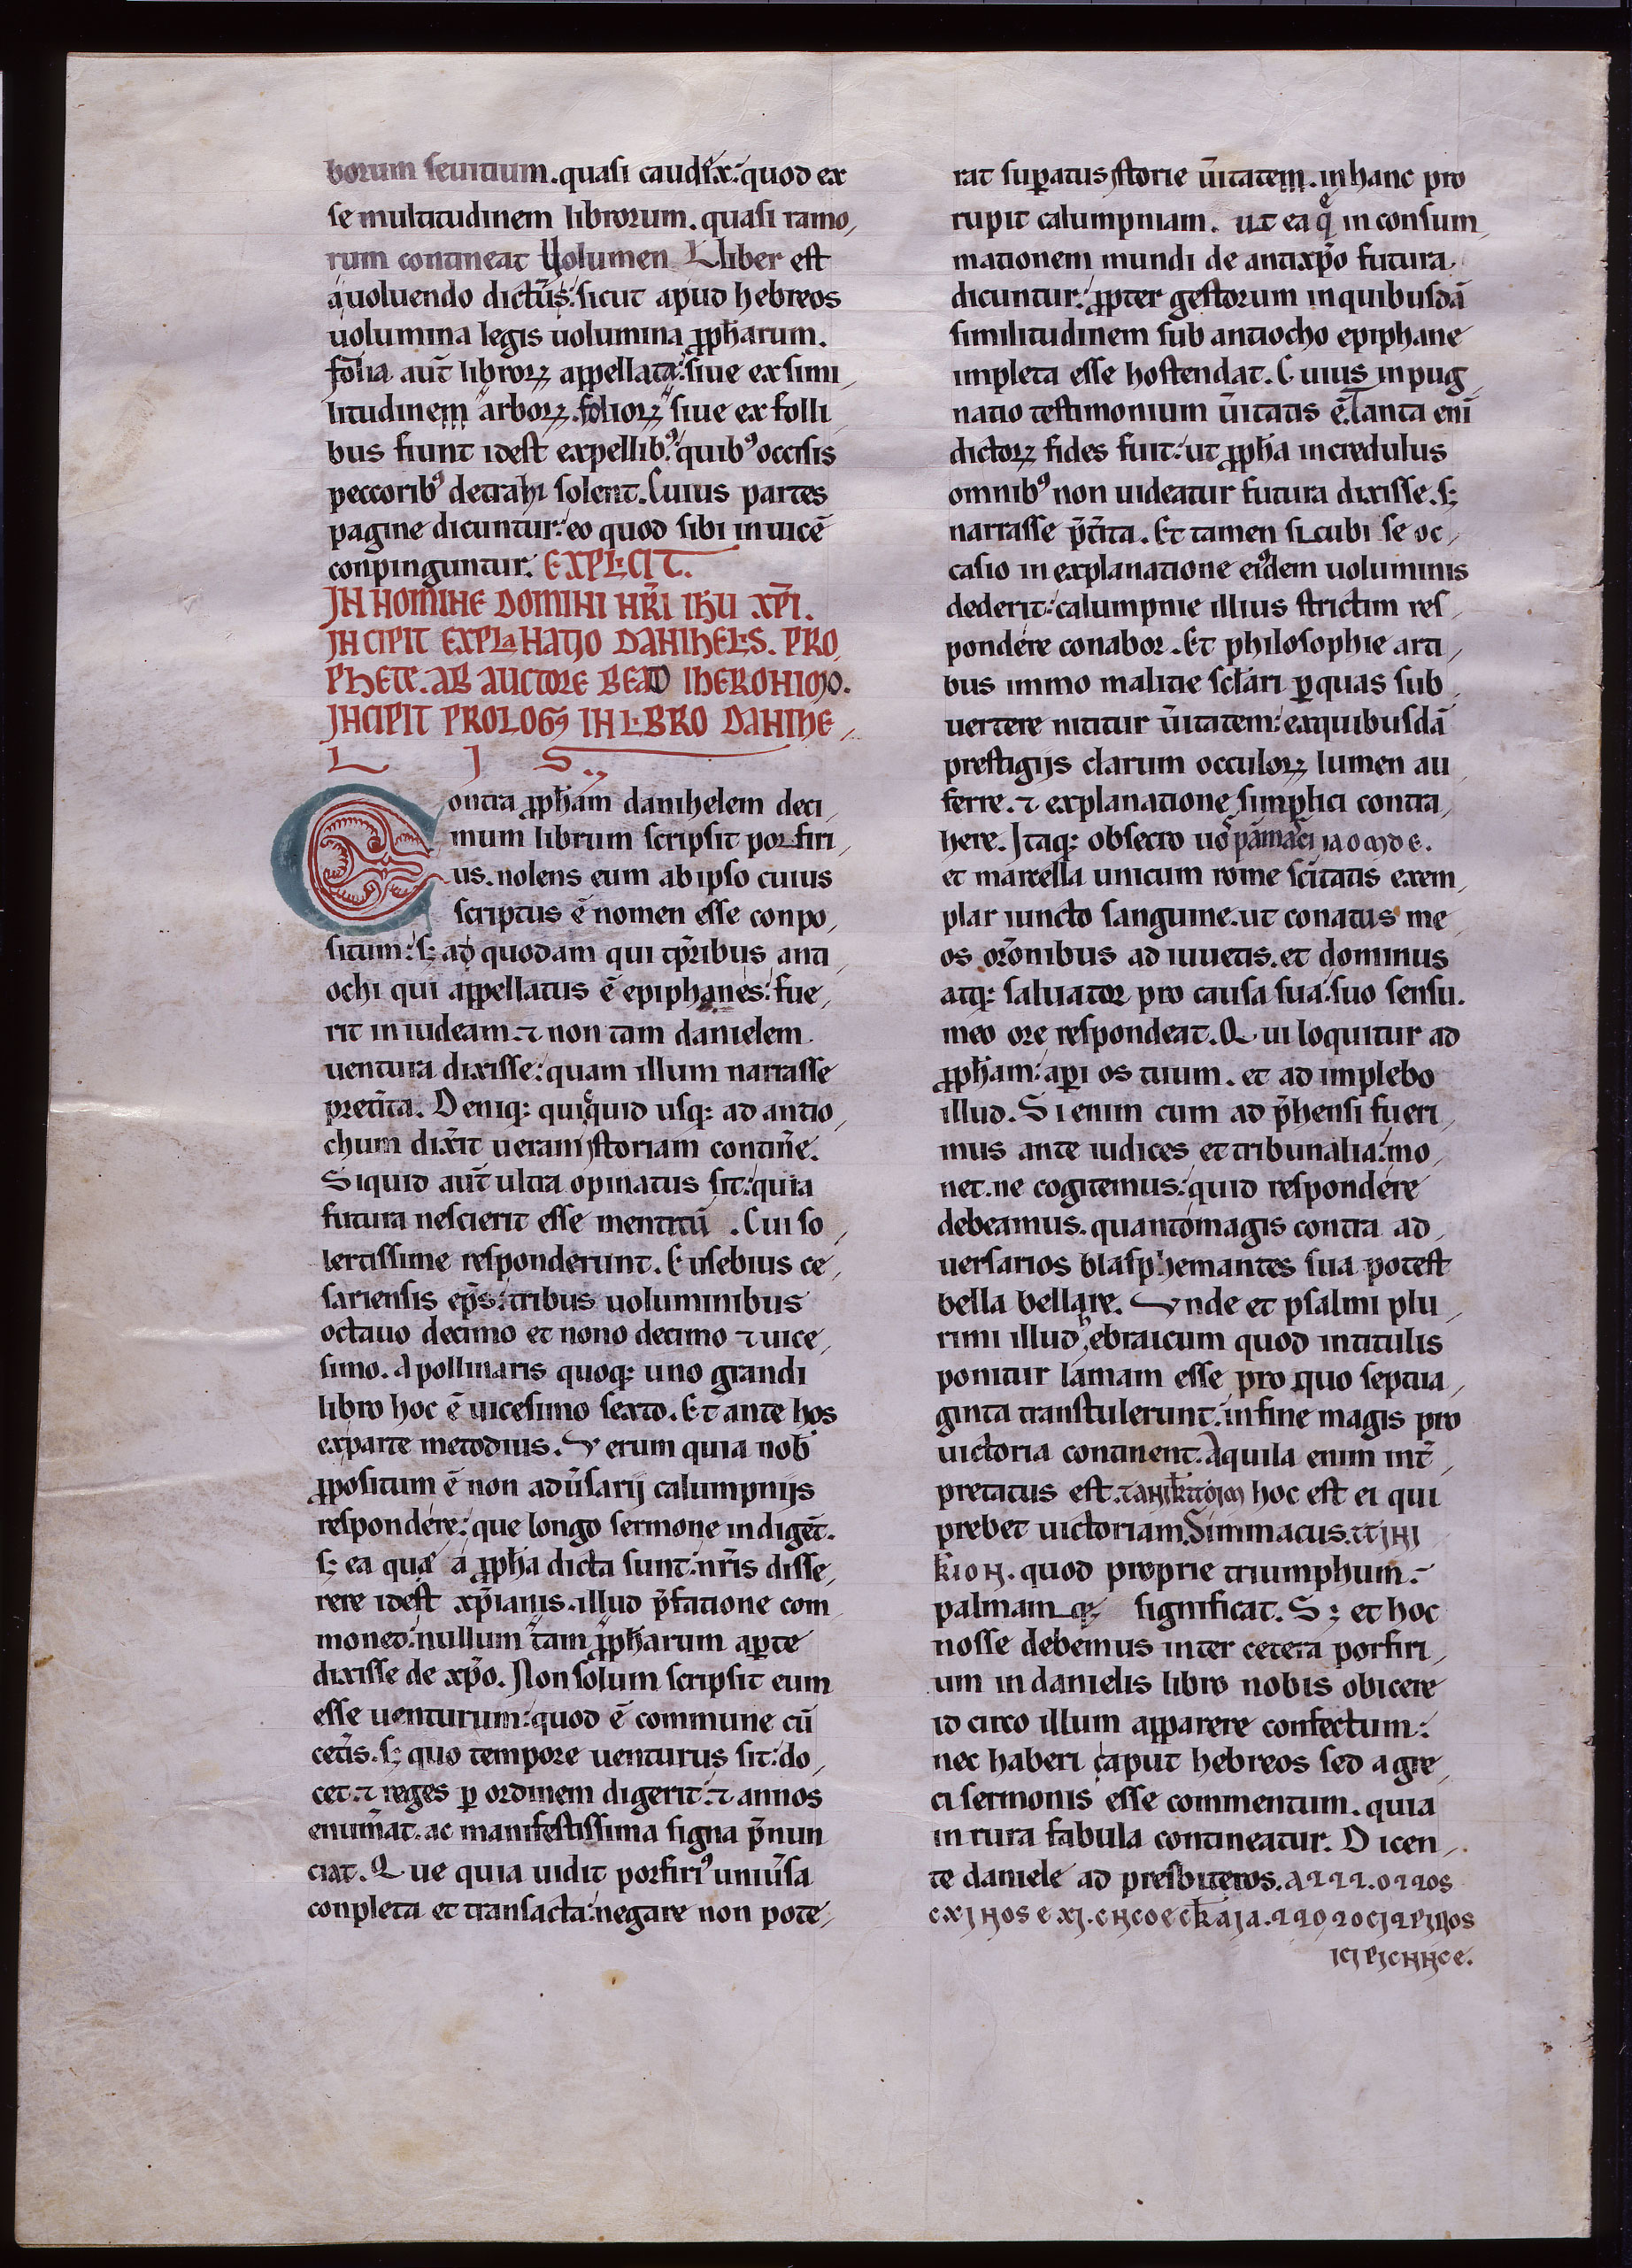 borum seuitium. quasi caudex: quod ex
se multitudinem librorum. quasi ramo,
rum contineat Uolumen Lliber est
auoluendo dictus: sicut apud hebreos
uolumina legis uolumina ꝓph̄arum.
folia aut̄ libroꝝ appellata: siue ex simi,
litudinem arboꝝ. folioꝝ siue ex folli
bus fiunt idest expellibꝰ: quibꝰ occisis
peccoribꝰ detrahi solent. Cuius partes
pagine dicuntur: eo quod sibi inuicē
conpinguntur. EXPLICIT.
IN NOMINE DOMINI NR̄I IHU XP̄I.
INCIPIT EXPLANATIO DANIHELIS. PRO,
PHETE. AB AUCTORE BEATO IHERONIMO.
INCIPIT PROLOGꝰ IN LIBRO DANIHE,
L I S.
Contra ꝓph̄am danihelem deci,
mum librum scripsit porfiri,
us. nolens eum ab ipso cuius
scriptus ē nomen esse conpo,
situm: sꝫ ad quodam qui tp̄ribus anti,
ochi qui appellatus ē epiphanes: fue,
rit in iudeam. ⁊ non tam danielem
uentura dixisse: quam illum narrasse
preterita. Deniqꝫ quicquid usqꝫ ad antio,
chum dix̄it ueram ystoriam contin̄e.
Siquid aut̄ ultra opinatus sit: quia
futura nescierit esse mentitū. Cui so,
lertissime responderunt. Eusebius ce,
sariensis ep̄s: tribus uoluminibus
octauo decimo et nono decimo ⁊ uice,
simo. Apollinaris quoqꝫ uno grandi
libro hoc ē uicesimo sexto. Et ante hos
exparte metodius. Uerum quia nob̄
ꝓpositum ē non adūsarij calumpnijs
respondere: que longo sermone indiget̄.
sꝫ ea quæ a ꝓph̄a dicta sunt: nr̄is disse,
rere idest xp̄ianis. illud p̄fatione com,
moneo: nullum tam ꝓph̄arum aꝑte
dixisse de xp̄o. Non solum scripsit eum
esse uenturum: quod ē commune cū
cet̄is. sꝫ quo tempore uenturus sit: do,
cet. ⁊ reges ꝑ ordinem digerit: ⁊ annos
enum̄at. ac manifestissima signa p̄nun
ciat. Que quia uidit porfiriꝰ uniūsa
conpleta et transacta: negare non pote,
rat suꝑatus ystorie ūitatem. in hanc pro
rupit calumpniam. ut ea q̄ in consum,
mationem mundi de antixp̄o futura
dicuntur: ꝓpter gestorum in quibusdā
similitudinem sub antiocho epiphane
impleta esse hostendat. Cuius inpug,
natio testimonium ūitatis ē. Tanta enī
dictoꝝ fides fuit: ut ꝓph̄a incredulus
omnibꝰ non uideatur futura dixisse. sꝫ
narrasse p̄t̄ita. Et tamen sicubi se oc,
casio in explanatione eiꝰdem uoluminis
dederit: calumpnie illius strictim res,
pondere conabor. Et philosophie arti,
bus immo malitie sc̄lari ꝑquas sub,
uertere nititur ūitatem: exquibusdā
prestigijs clarum occuloꝝ lumen au,
ferre. ⁊ explanatione simplici contra,
here. Itaqꝫ obsecro uos pāmāci
et marcella unicum rome sc̄itatis exem,
plar iuncto sanguine. ut conatus me,
os or̄onibus ad iuuetis. et dominus
atqꝫ saluator pro causa sua. suo sensu.
meo ore respondeat. Qui loquitur ad
ꝓph̄am: aꝑi os tuum. et ad implebo
illud. Si enim cum ad p̄hensi fueri,
mus ante iudices et tribunalia: mo,
net. ne cogitemus: quid respondere
debeamus. quantomagis contra ad,
uersarios blasphemantes sua potest
bella bellare. Unde et psalmi plu,
rimi illud hebraicum quod intitulis
ponitur lamam esse pro quo septua,
ginta transtulerunt. in fine magis pro
uictoria continent. Aquila enim int̄,
pretatus est. hoc est ei qui
prebet uictoriam. Simmacus.
quod proprie triumphum.
palmamqꝫ significat. Sꝫ et hoc
nosse debemus inter cetera porfiri,
um in danielis libro nobis obicere
id circo illum apparere confectum:
nec haberi caput hebreos sed a gre,
ci sermonis esse commentum. quia
in rura fabula contineatur. Dicen,
te daniele ad presbiteros.